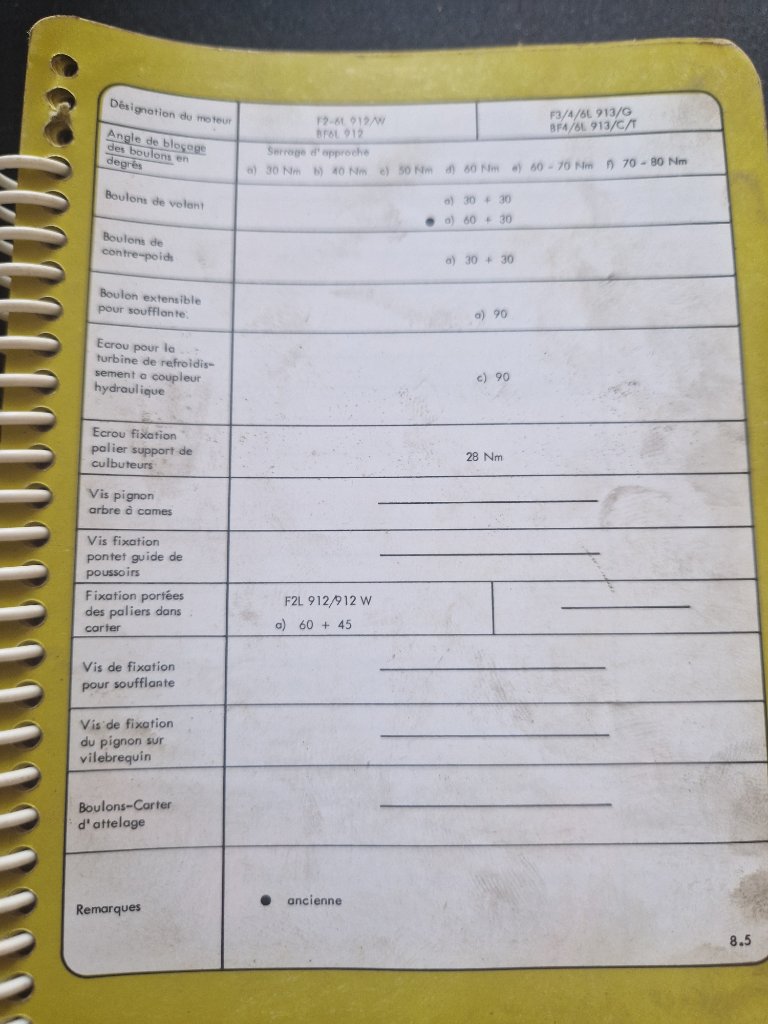 Désignation du moteur
F2-6L 912/W
BF6L 912
F3/4/6L 913/G
BF4/6L 913/C/T
Angle de blocage
des boulons en
degrés
Serrage d'approche
a) 30 Nm b) 40 Nm c) 50 Nm d) 60 Nm e) 60 - 70 Nm f) 70 - 80 Nm
Boulons de volant
a) 30 + 30
● a) 60 + 30
Boulons de
contre-poids
a) 30 + 30
Boulon extensible
pour soufflante
a) 90
Ecrou pour la
turbine de refroidis-
sement a coupleur
hydraulique
c) 90
Ecrou fixation
palier support de
culbuteurs
28 Nm
Vis pignon
arbre à cames
Vis fixation
pontet guide de
poussoirs
Fixation portées
des paliers dans
carter
F2L 912/912 W
a) 60 + 45
Vis de fixation
pour soufflante
Vis de fixation
du pignon sur
vilebrequin
Boulons-Carter
d'attelage
Remarques
● ancienne
8.5